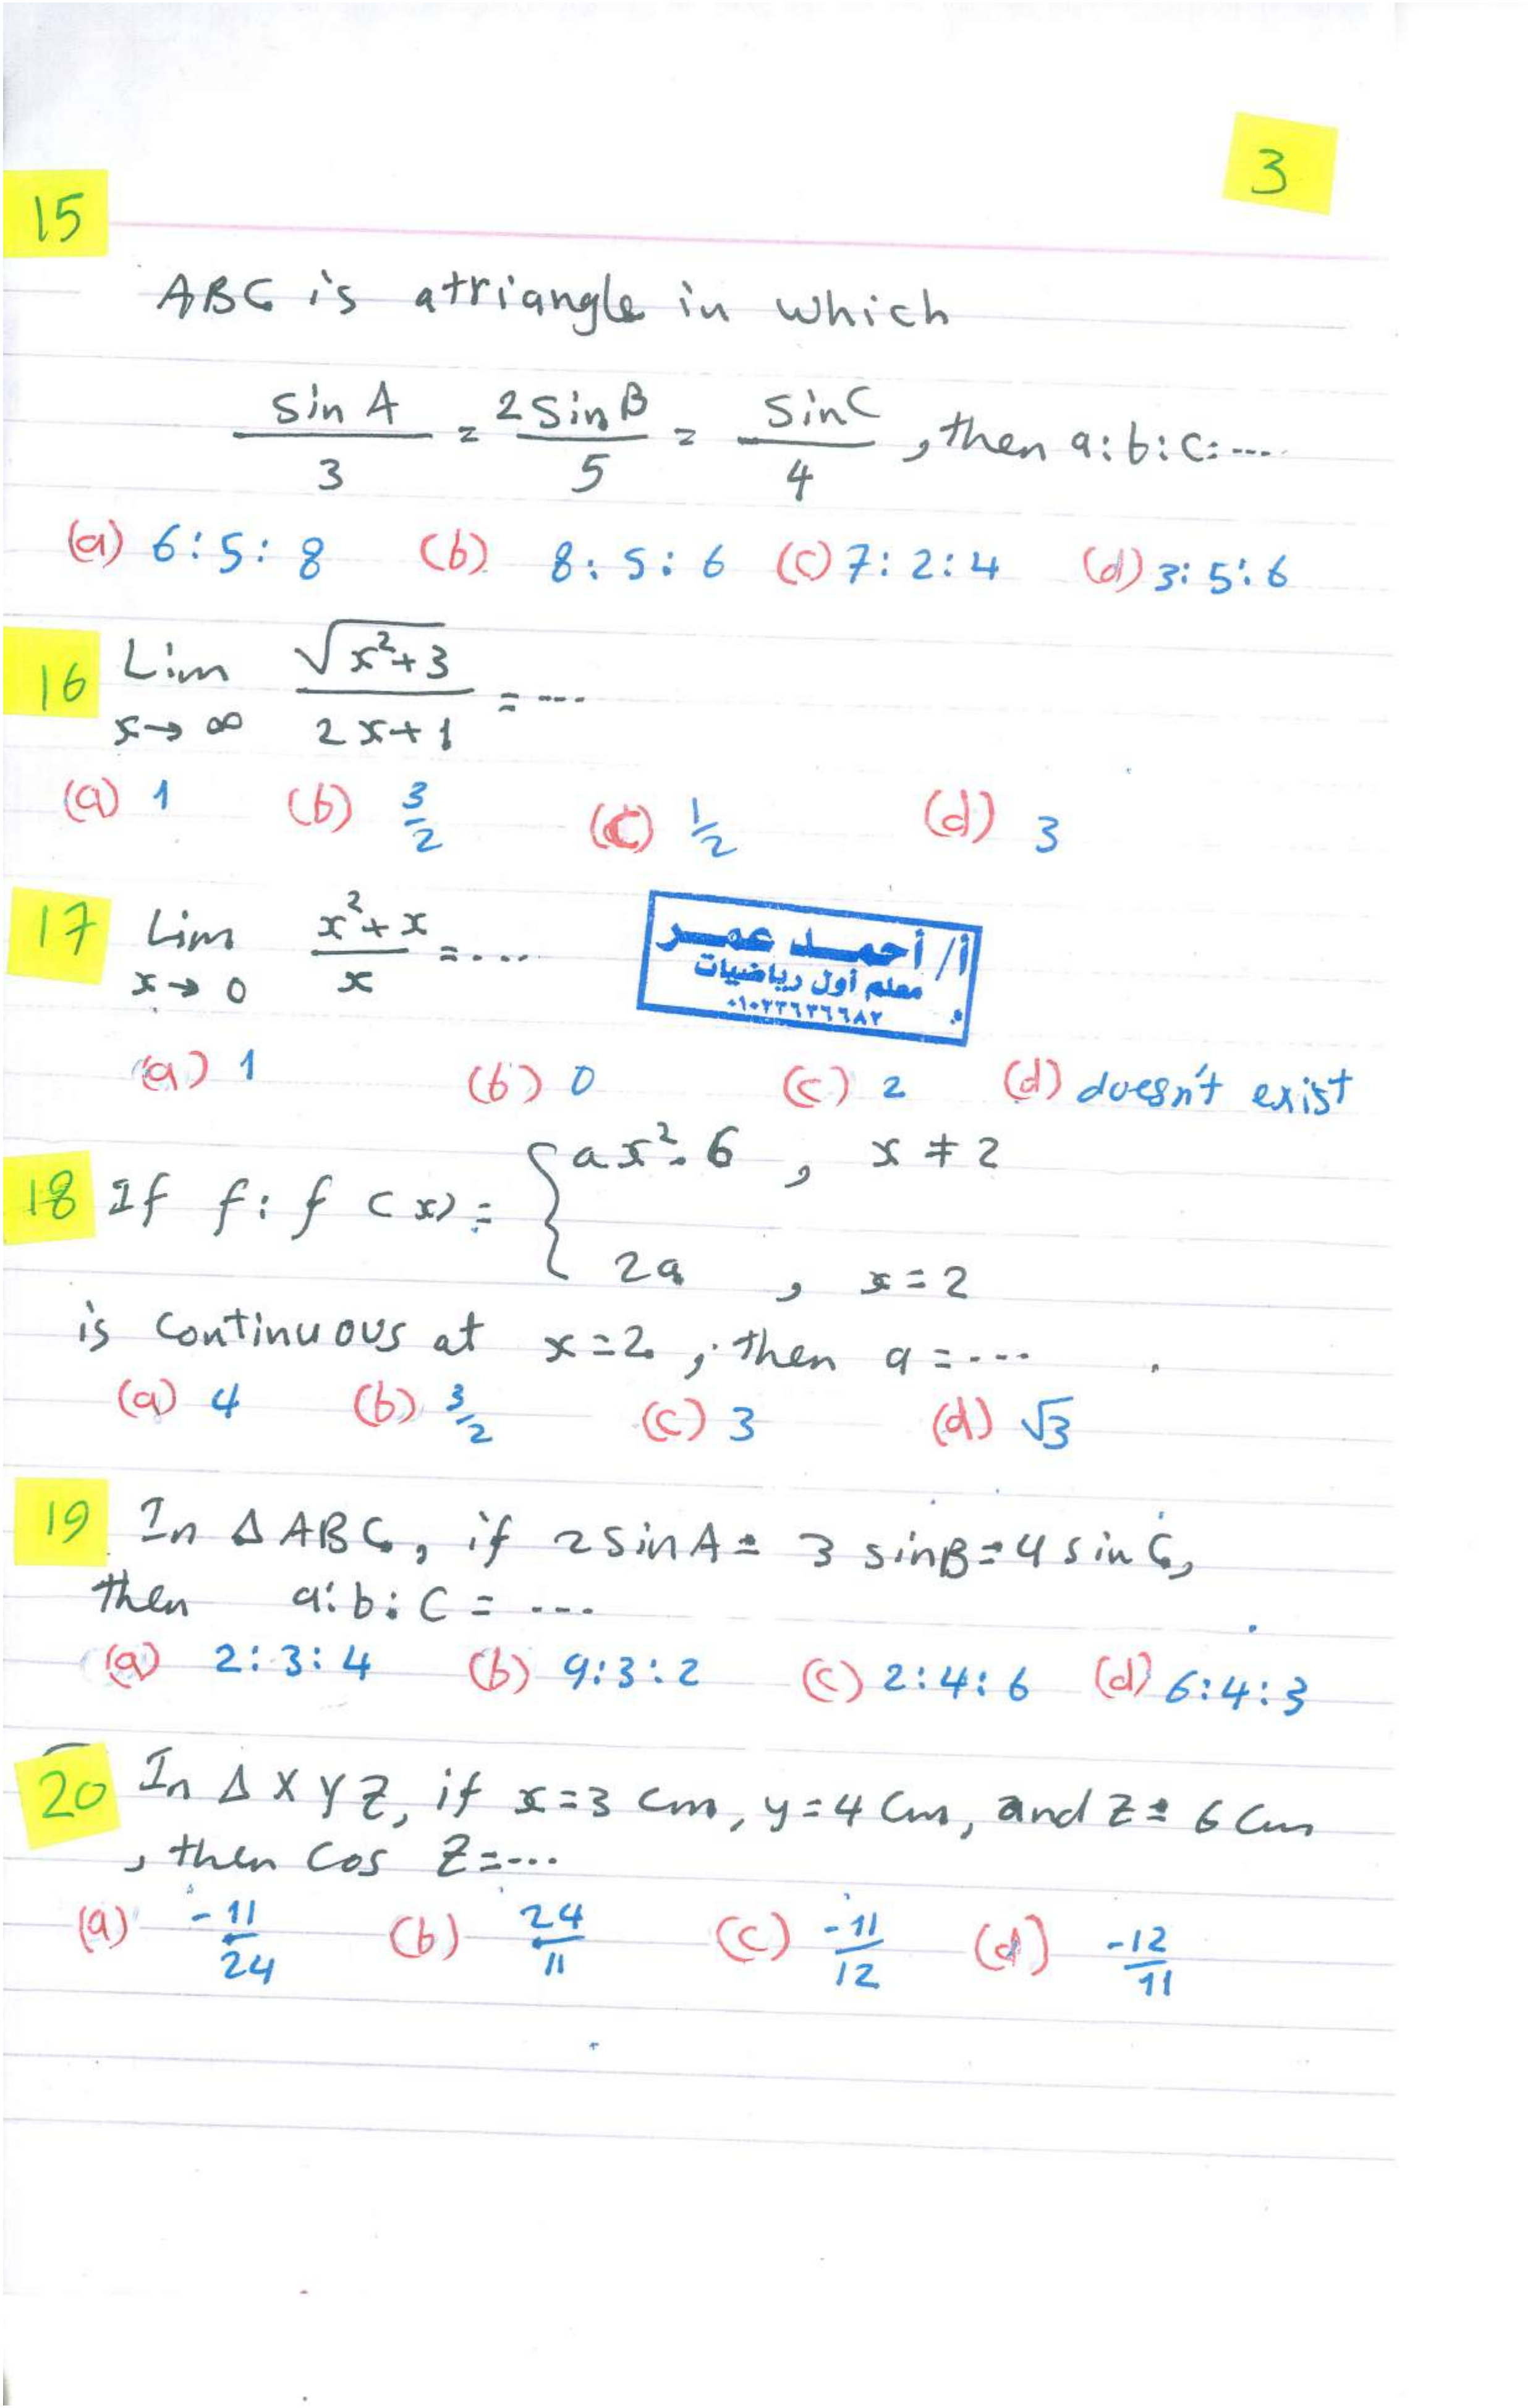 3
15
ABC is atriangle in which
sin A / 3 = 2 sin B / 5 = sin C / 4 , then a:b:c: ----
(a) 6:5:8 (b) 8:5:6 (c) 7:2:4 (d) 3:5:6
16 Lim x→∞ √(x²+3) / (2x+1) = ---
(a) 1 (b) 3/2 (c) 1/2 (d) 3
17 Lim x→0 (x²+x) / x = ....
أ/ أحمد عمر
معلم أول رياضيات
٠١٠٢٢٦٣٦٦٨٢
(a) 1 (b) 0 (c) 2 (d) doesn't exist
18 If f: f(x) = { ax²-6 , x ≠ 2
2a , x = 2
is continuous at x=2 , then a = ---
(a) 4 (b) 3/2 (c) 3 (d) √3
19 In Δ ABC, if 2 sin A = 3 sin B = 4 sin C,
then a:b:c = ---
(a) 2:3:4 (b) 9:3:2 (c) 2:4:6 (d) 6:4:3
20 In Δ XYZ, if x=3 cm, y=4 cm, and z= 6 cm
, then cos Z=...
(a) -11/24 (b) 24/11 (c) -11/12 (d) -12/11